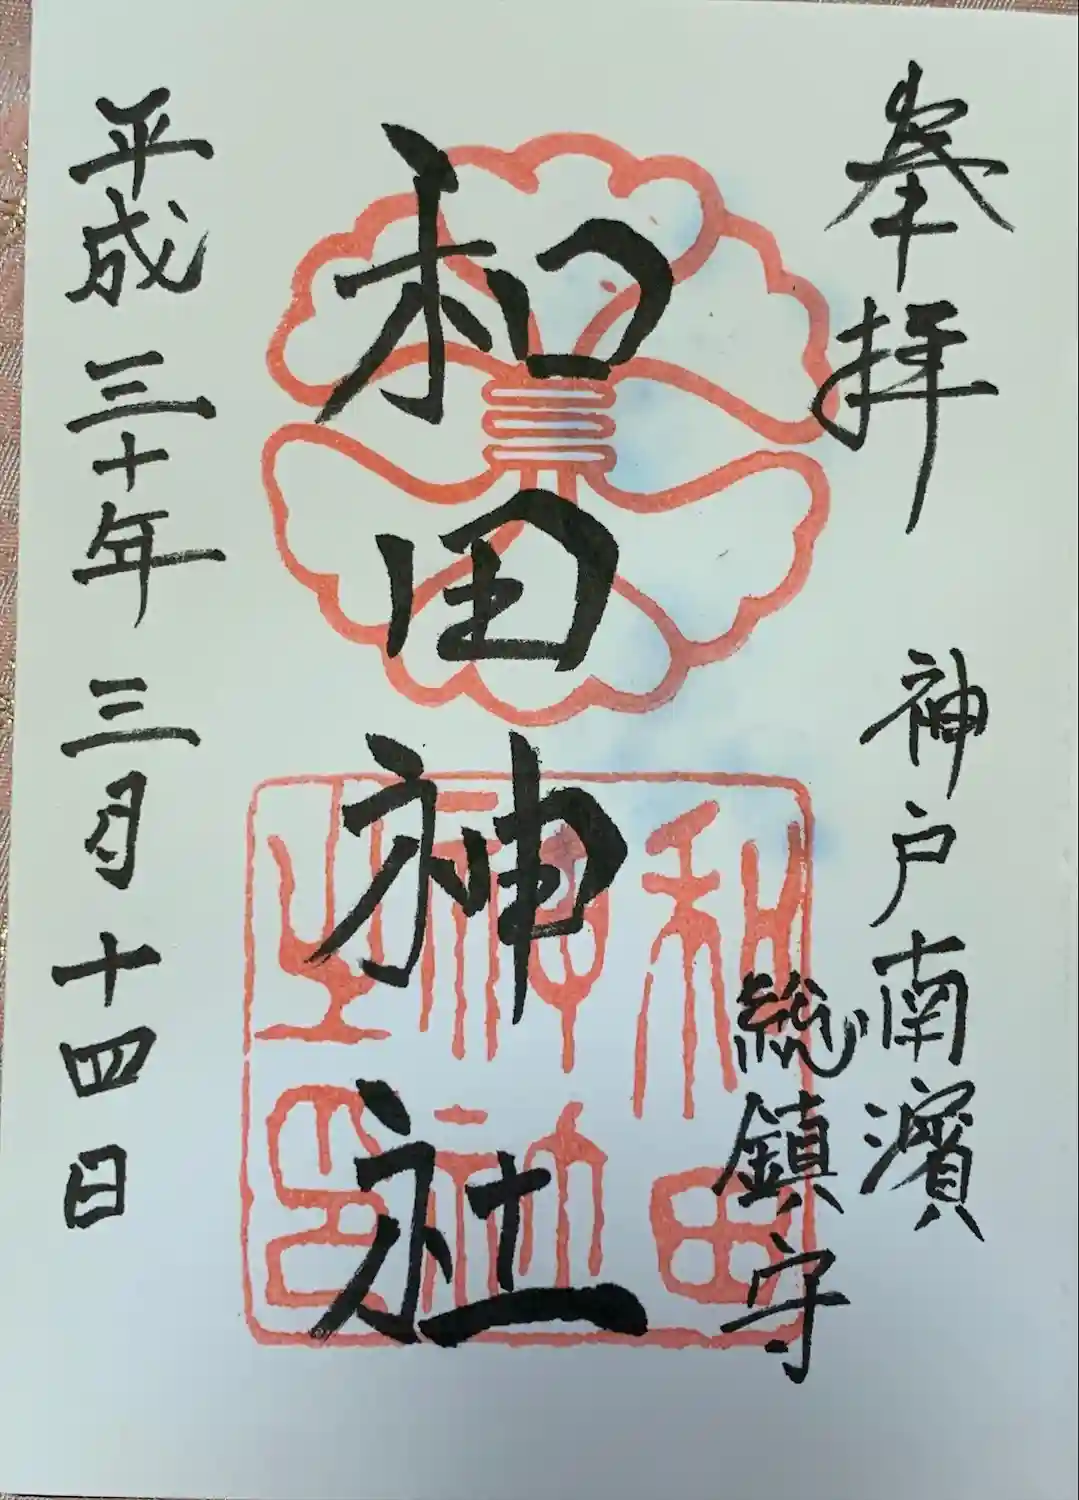 奉拝
神戸南濱
総鎮守
和田神社
和田神社之印
平成三十年三月十四日